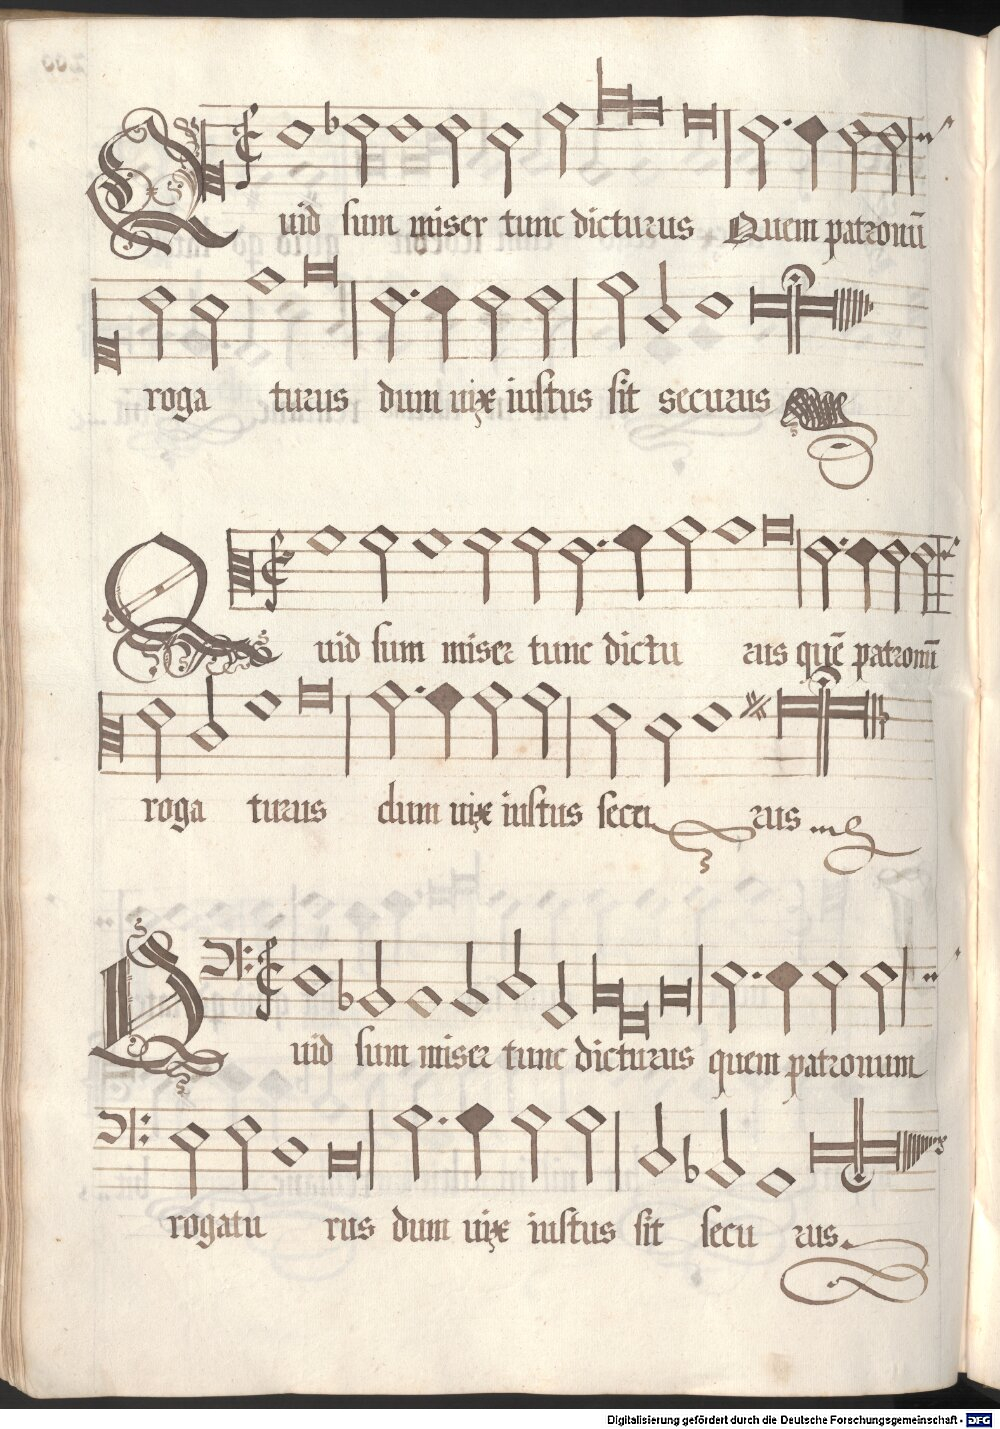 Quid sum miser tunc dicturus Quem patronū
roga turus dum uix iustus sit securus
Quid sum miser tunc dictu rus quē patronū
roga turus dum uix iustus secu rus
Quid sum miser tunc dicturus quem patronum
rogatu rus dum uix iustus sit secu rus.
Digitalisierung gefördert durch die Deutsche Forschungsgemeinschaft - DFG